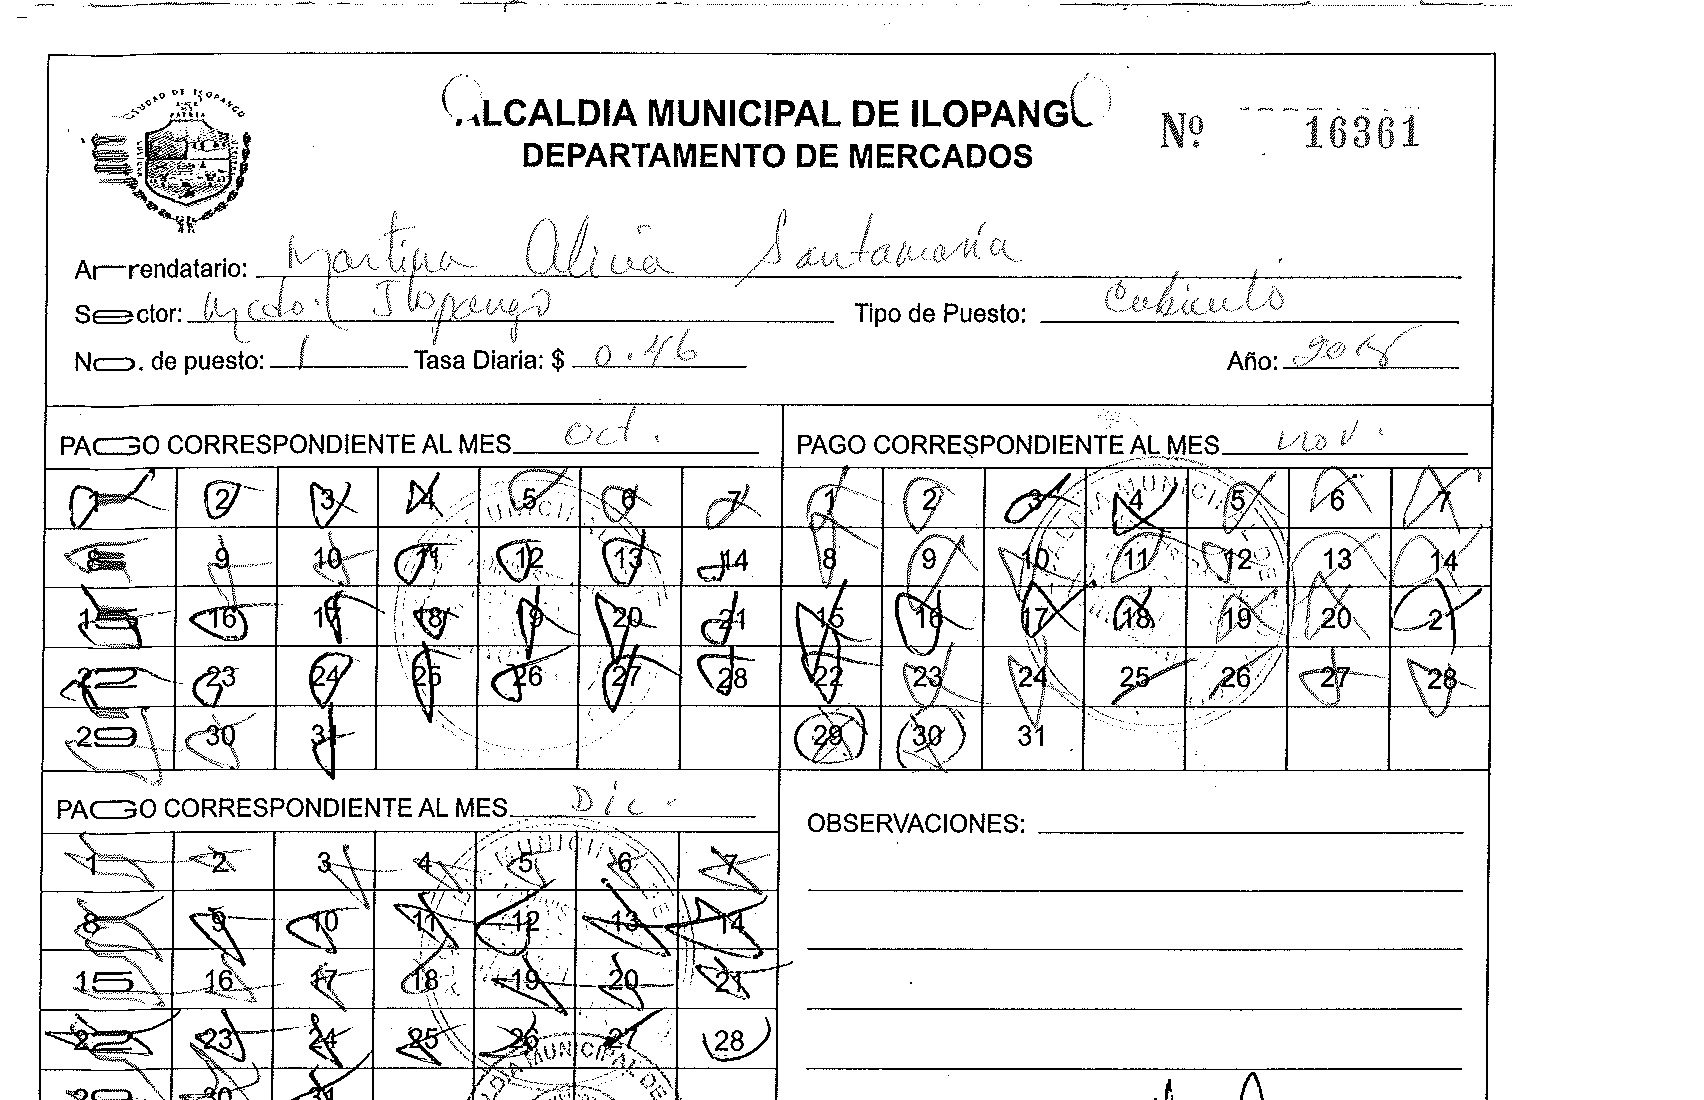 ALCALDIA MUNICIPAL DE ILOPANGO
Nº 16361
DEPARTAMENTO DE MERCADOS
CIUDAD DE ILOPANGO
PATRIA
Arrendatario: Martina Alicia Santamaría
Sector: Ilopango Tipo de Puesto: Cubierto
No. de puesto: 1 Tasa Diaria: $ 0.46 Año:
PAGO CORRESPONDIENTE AL MES Oct. PAGO CORRESPONDIENTE AL MES Nov.
1 2 3 4 5 6 7 1 2 3 4 5 6 7
8 9 10 11 12 13 14 8 9 10 11 12 13 14
15 16 17 18 19 20 21 15 16 17 18 19 20 21
22 23 24 25 26 27 28 22 23 24 25 26 27 28
29 30 31 29 30 31
PAGO CORRESPONDIENTE AL MES Dic. OBSERVACIONES:
1 2 3 4 5 6 7
8 9 10 11 12 13 14
15 16 17 18 19 20 21
22 23 24 25 26 27 28
29 30 31
MUNICIPAL DE